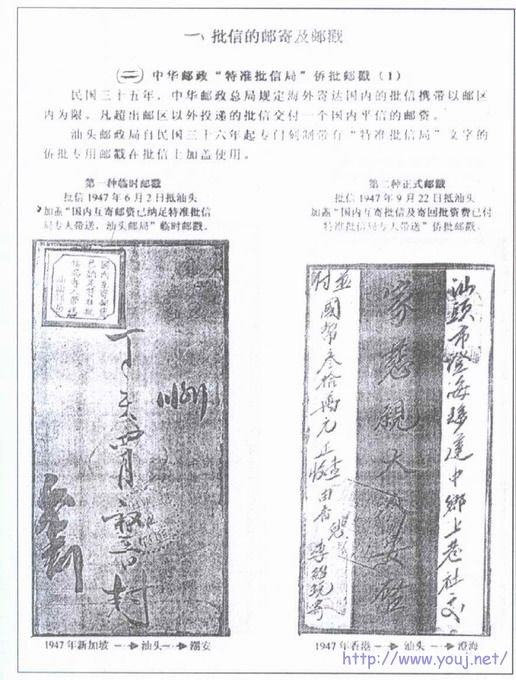 一、批信的邮寄及邮戳
(二)中华邮政“特准批信局”侨批邮戳(1)
民国三十五年，中华邮政总局规定海外寄达国内的批信携带以邮区
内为限。凡超出邮区以外投递的批信交付一个国内平信的邮资。
汕头邮政局自民国三十六年起专门刻制带有“特准批信局”文字的
侨批专用邮戳在批信上加盖使用。
第一种临时邮戳
批信1947年6月2日抵汕头
加盖“国内互寄邮资已纳足特准批信
局专人带送，汕头邮局”临时邮戳。
第二种正式邮戳
批信1947年9月22日抵汕头
加盖“国内互寄批信及寄回批资费已付
特准批信局专人带送”侨批邮戳。
丁亥四月
封
汕頭市澄海 中鄉上巷社交
家慈親大人 安啟
並付
國幣叁拾萬元正 由香
1947年新加坡 → 汕头 → 潮安
1947年香港 → 汕头 → 澄海
http://www.youj.net/